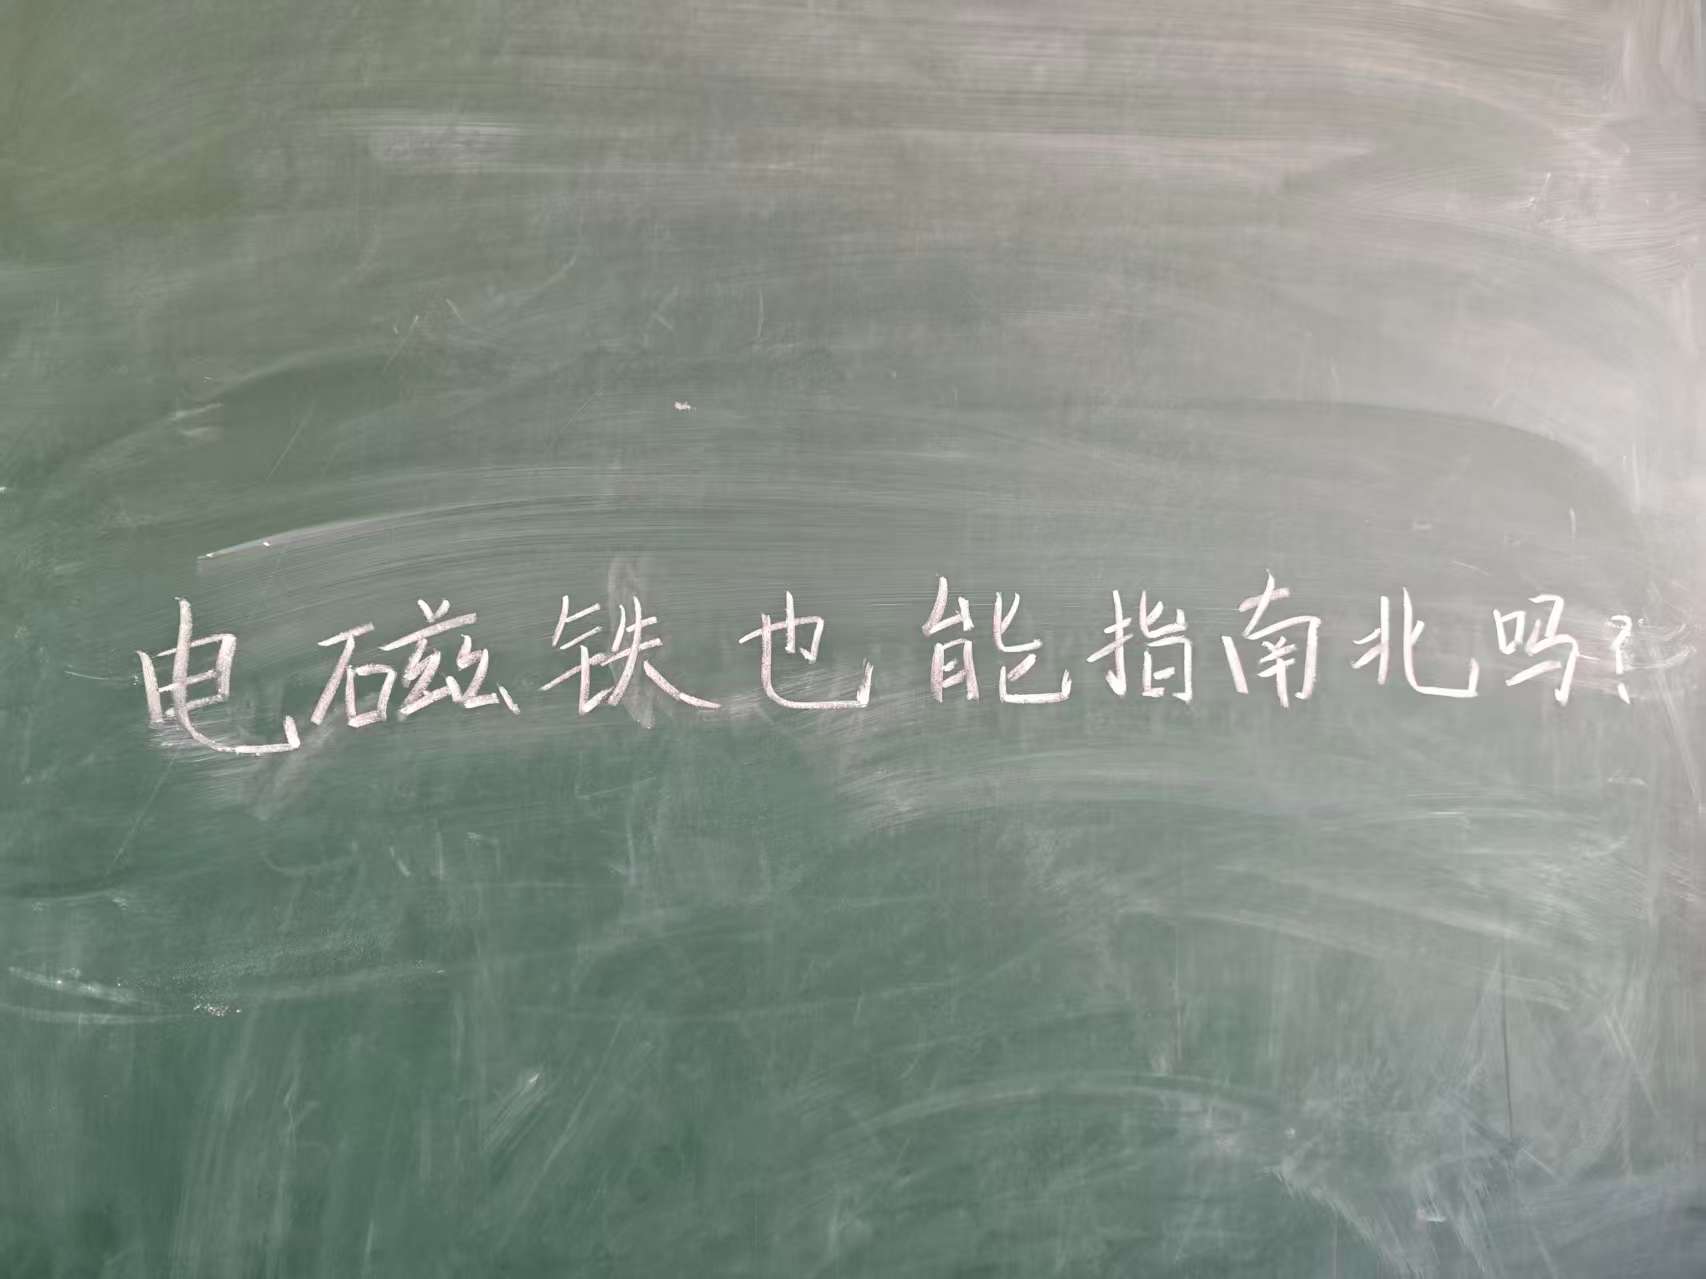 电磁铁也能指南北吗?